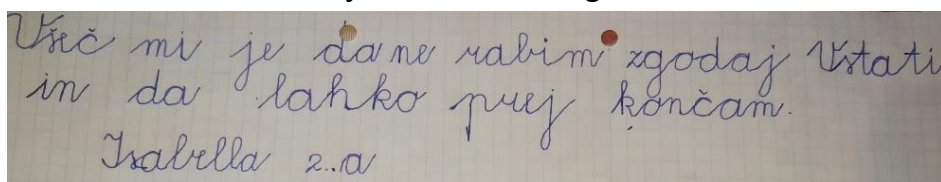 Všeč mi je da ne rabim zgodaj Vstati
in da lahko prej končam.
Izabella 2..a